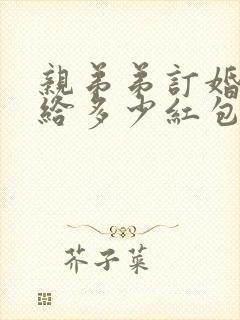 親弟弟訂婚
給多少紅包
芥子菜